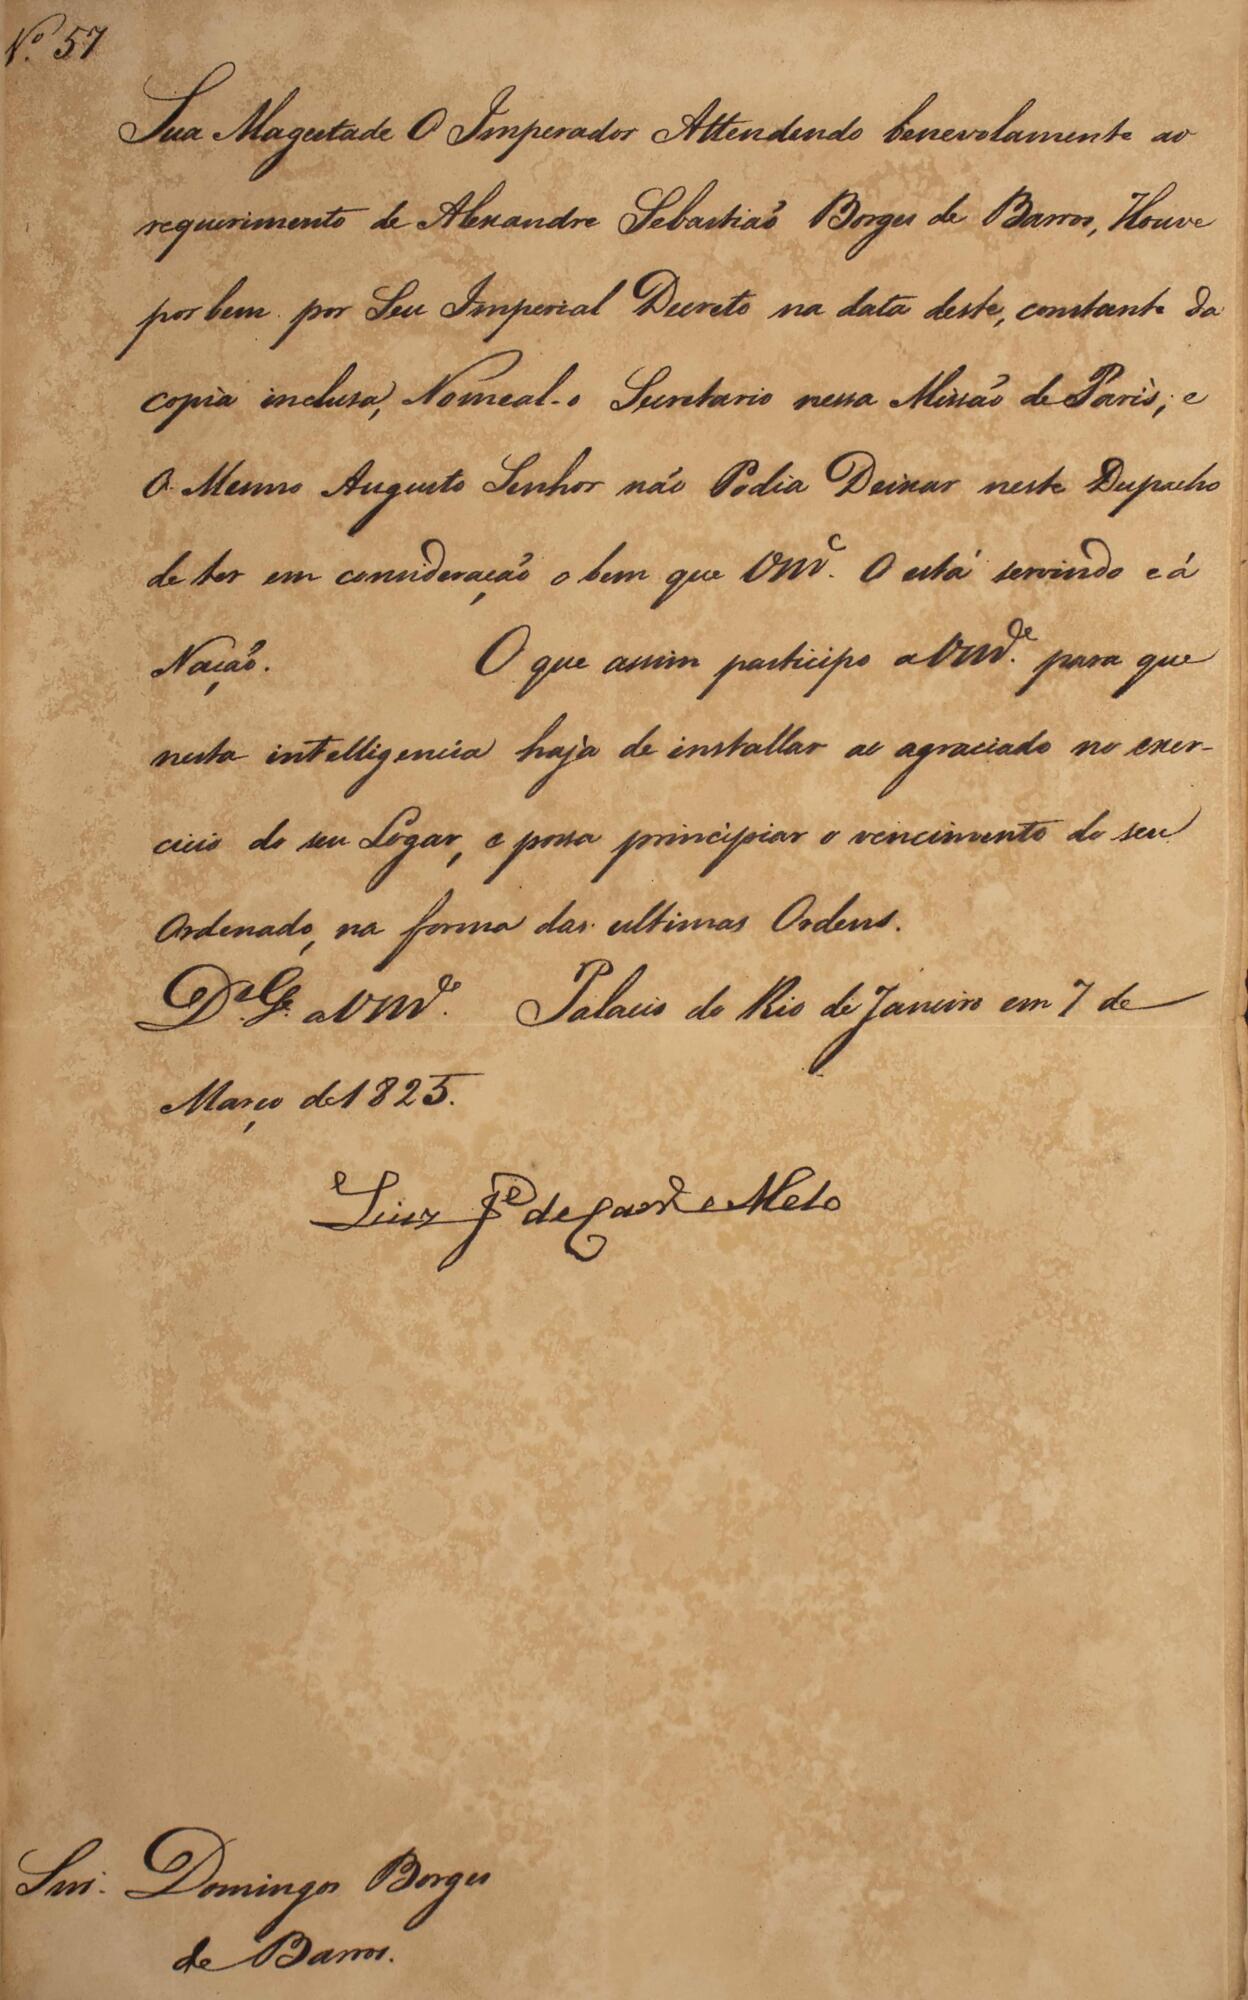 Nº 57
Sua Magestade O Imperador Attendendo benevolamente ao
requerimento de Alexandre Sebastiaõ Borges de Barros, Houve
por bem por Seu Imperial Decreto na data deste, constante da
copia inclusa, Nomeal-o Secretario nessa Missaõ de Paris; e
O Mesmo Augusto Senhor não Podia Deixar neste Despacho
de ter em consideração o bem que VMcê. O está servindo e á
Nação. O que assim participo a VMce. para que
nesta intelligencia haja de installar ao agraciado no exer-
cicio do seu Logar, e possa principiar o vencimento do seu
Ordenado, na forma das ultimas Ordens.
Ds. Ge. a VMce. Palacio do Rio de Janeiro em 7 de
Março de 1825.
Luiz Je. de Carvo. e Mello
Snr. Domingos Borges
de Barros.